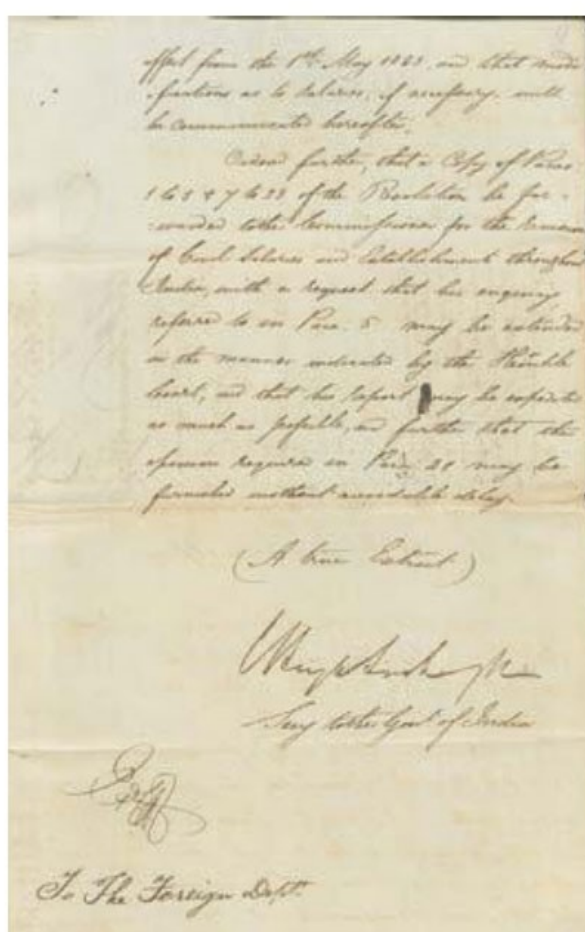 effect from the 1st May 1863, and that modi
fications as to Salaries, if necessary will
be communicated hereafter.
Ordered further, that a Copy of Paras
1 to 5 & 7 to 23 of the Resolution be for-
warded to the Commissioner for the revision
of Civil Salaries and Establishment throughout
India, with a request that his enquiry
referred to in Para. 5 may be extended
in the manner indicated by the Hon'ble
Court, and that his report may be expedited
as much as possible, and further that the
opinion required in Para 21 may be
furnished without avoidable delay.
(A true Extract)
Secy to the Govt of India
To The Foreign Dept.